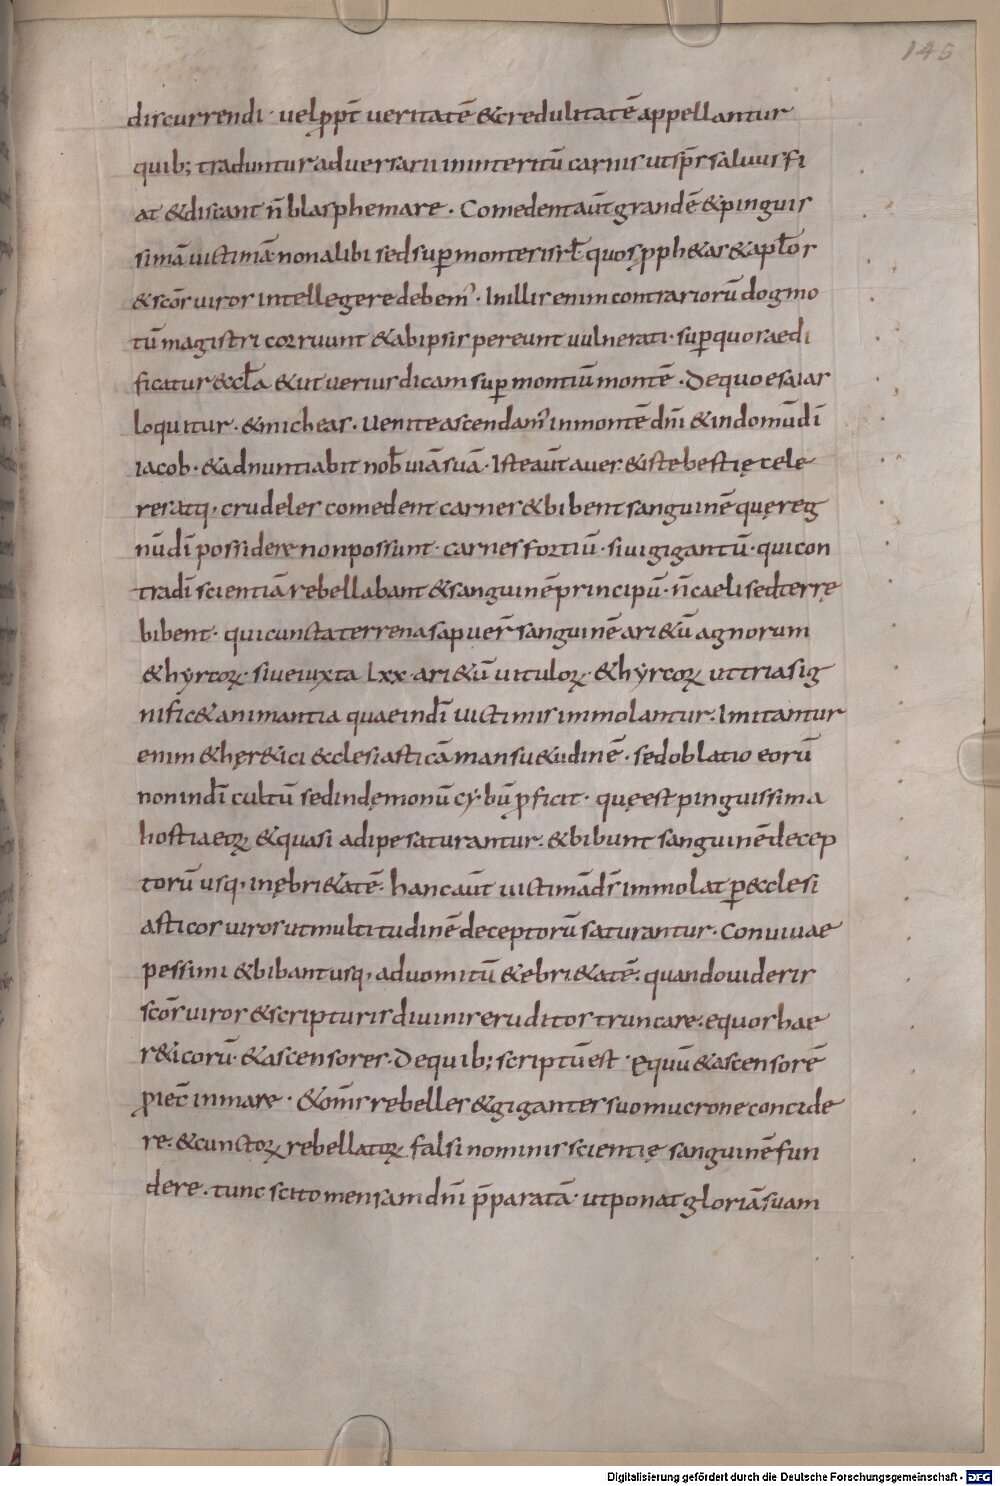 145
discurrendi · uel ꝓpt̄ ueritatē & credulitatē appellantur
quib; traduntur aduersarii in interitū carnis ut sp̄s saluus fi
at & discant n̄ blasphemare . Comedent aūt grandē & pinguis
simā uictimā non alibi sed sup̱ montes isrł quos ꝓph&as & apłos
& scōs uiros intellegere debem᾽ . In illis enim contrariorū dogmo
tū magistri corruunt & ab ipsis pereunt uulnerati · sup̱ quos aedi
ficatur ęccła & ut uerius dicam sup̱ montiū montē . De quo esaias
loquitur . & micheas . Uenite ascendam᾽ in montē dn̄i & in domū dī
iacob . & adnuntiabit nob̄ uiā suā . Iste aūt aues . & iste bestię cele
res atq, crudeles comedent carnes & bibent sanguinē quę reg
nū dī possidere non possunt · carnes fortiū · siui gigantū · qui con
tra dī scientiā rebellabant & sanguinē principū · n̄ caeli sed terrę
bibent · qui cuncta terrena sapuer̄ sanguinē ari&ū agnorum
& hyrcoꝝ · siue iuxta lxx · ari&ū uituloꝝ · & hyrcoꝝ ut tria sig
nific& animantia quae in dī uictimis immolantur . Imitantur
enim & hęr&ici ęcclesiasticā mansu&udinē · sed oblatio eorū
non in dī cultū sed in dęmonū cybū ꝓficit · quę est pinguissima
hostia eoꝝ & quasi adipe saturantur . & bibunt sanguinē decep
torū usq, in ębri&atē . hanc aūt uictimā ds̄ immolat p̱ ęcclesi
asticos uiros ut multitudinē deceptorū saturantur . Conuiuae
pessimi & bibant usq, ad uomitū & ebri&atē . quando uideris
scōs uiros & scripturis diuinis eruditos truncare . equos hae
r&icorū · & ascensores . De quib; scriptū est · Equū & ascensorē
ꝓiec̄ in mare · & om̄s rebelles & gigantes suo mucrone concide
re . & cunctoꝝ rebellatoꝝ falsi nominis scientię sanguinē fun
dere . tunc scito mensam dn̄i p̄paratā · ut ponat gloriā suam
Digitalisierung gefördert durch die Deutsche Forschungsgemeinschaft - DFG